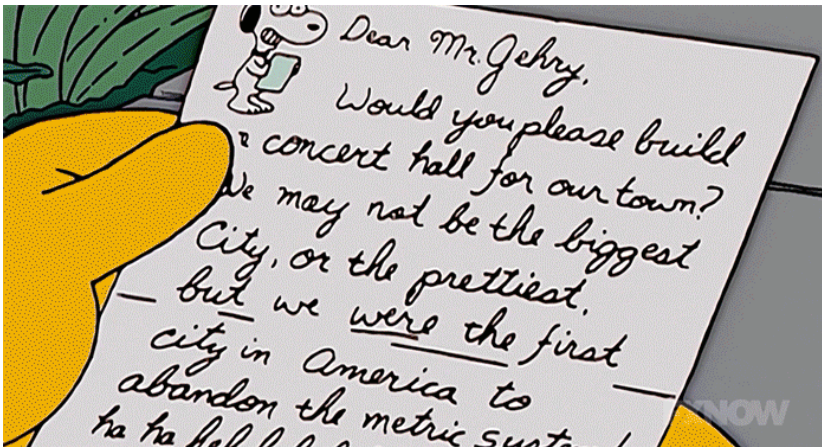 Dear Mr. Gehry,
Would you please build
concert hall for our town?
We may not be the biggest
City, or the prettiest,
but we were the first
city in America to
abandon the metric system!
ha ha
NOW